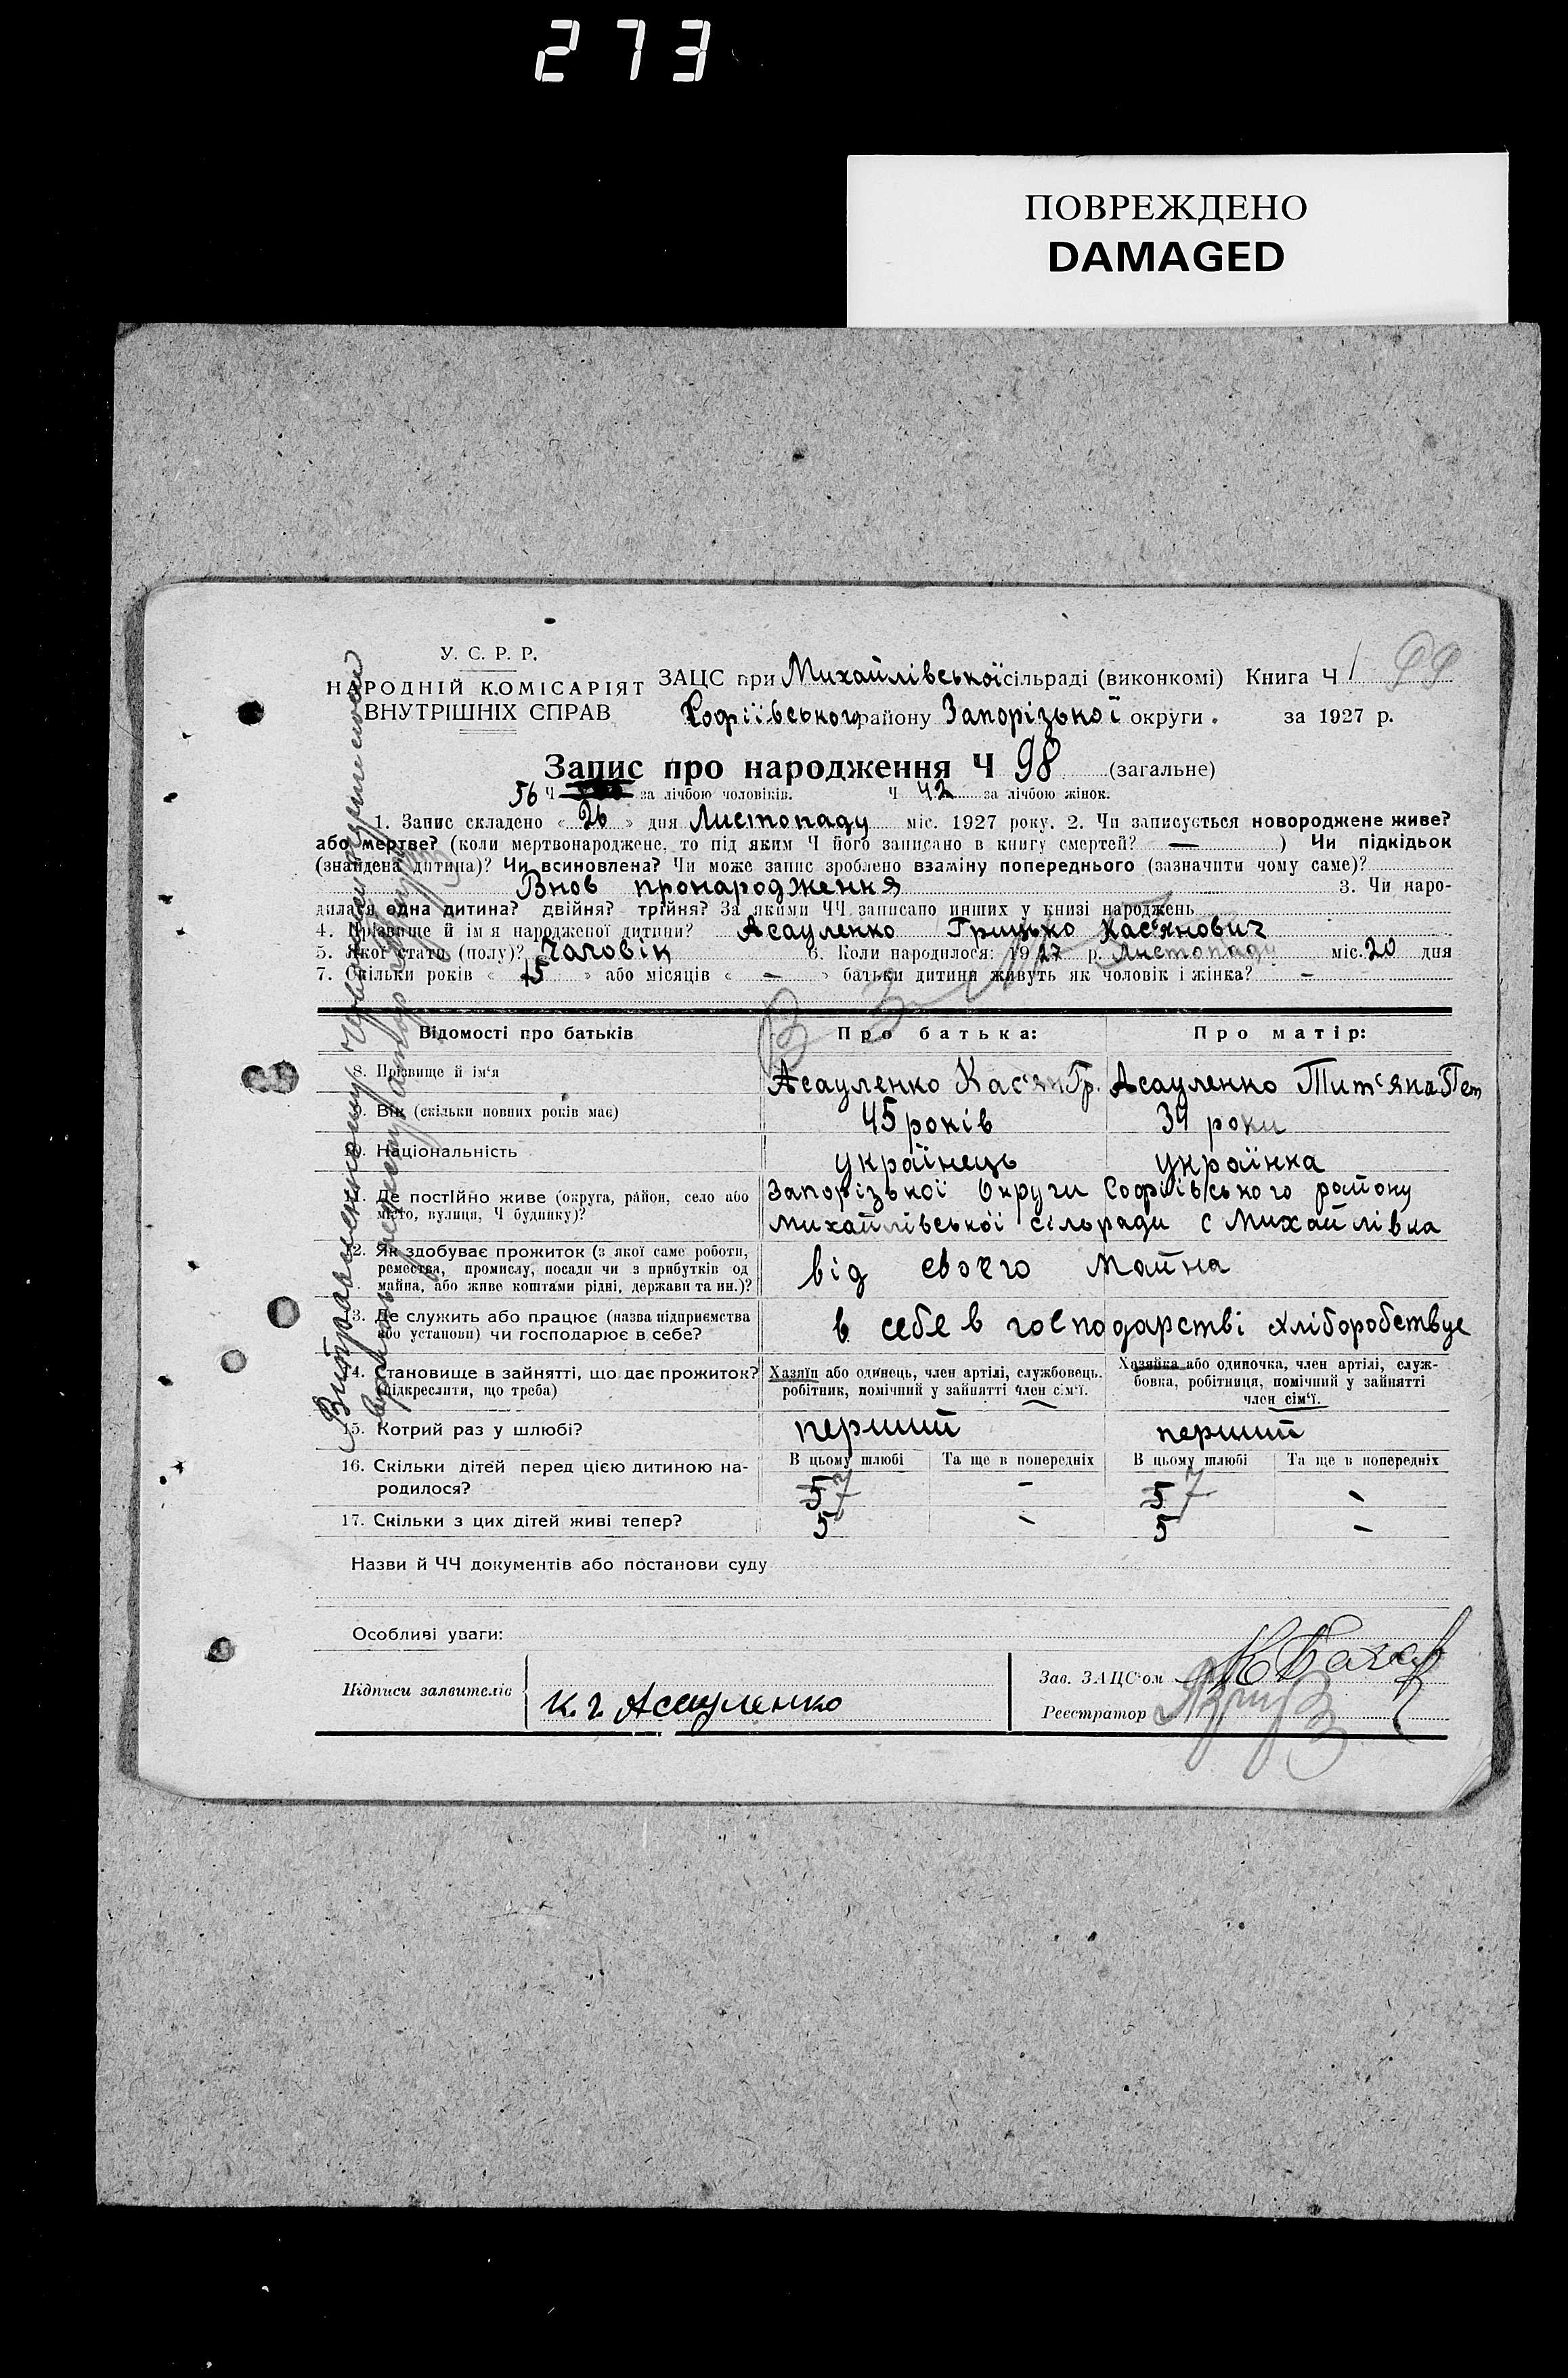 273
ПОВРЕЖДЕНО
DAMAGED
У. С. Р. Р.
НАРОДНІЙ КОМІСАРІЯТ
ВНУТРІШНІХ СПРАВ
ЗАЦС при Михайлівської сільраді (виконкомі) Книга Ч 1 99
Софіївського району Запорізької округи. за 1927 р.
Запис про народження Ч 98 (загальне)
56 Ч за лічбою чоловіків. Ч 42 за лічбою жінок.
1. Запис складено « 26 » дня Листопаду міс. 1927 року. 2. Чи записується новороджене живе?
або мертве? (коли мертвонароджене, то під яким Ч його записано в книгу смертей? — ) Чи підкідьок
(знайдена дитина)? Чи всиновлена? Чи може запис зроблено взаміну попереднього (зазначити чому саме)?
Внов пронародження 3. Чи наро-
дилася одна дитина? двійня? трійня? За якими ЧЧ записано инших у книзі народжень
4. Прізвище й ім'я народженої дитини? Асауленко Грицько Кас'янович
5. Якої стати (полу)? Чаловік 6. Коли народилося: 1927 р. Листопаду міс. 20 дня
7. Скільки років « 15 » або місяців « — » батьки дитини живуть як чоловік і жінка? —
Відомості про батьків
Про батька:
Про матір:
8. Прізвище й ім'я
Асауленко Кас'ян Гр.
Асауленко Тит'яна Пет
9. Вік (скільки повних років має)
45 років
34 роки
10. Національність
українець
українка
11. Де постійно живе (округа, район, село або
місто, вулиця, Ч будинку)?
Запорізької Округи Софіівського району
Михайлівської сільради с Михайлівка
12. Як здобуває прожиток (з якої саме роботи,
ремества, промислу, посади чи з прибутків од
майна, або живе коштами рідні, держави та ин.)?
від своєго майна
13. Де служить або працює (назва підприємства
або установи) чи господарює в себе?
в себе в господарстві хліборобствує
14. Становище в зайнятті, що дає прожиток?
(підкреслити, що треба)
Хазяїн або одинець, член артілі, службовець.
робітник, помічний у зайнятті член сім'ї.
Хазяйка або одиночка, член артілі, служ-
бовка, робітниця, помічний у зайнятті
член сім'ї.
15. Котрий раз у шлюбі?
перший
перший
16. Скільки дітей перед цією дитиною на-
родилося?
В цьому шлюбі
Та ще в попередніх
В цьому шлюбі
Та ще в попередніх
5 7 - 5 7 -
17. Скільки з цих дітей живі тепер?
5 - 5 -
Назви й ЧЧ документів або постанови суду
Особливі уваги:
Підписи заявителів
К. Г. Асауленко
Зав. ЗАЦС'ом
Реєстратор